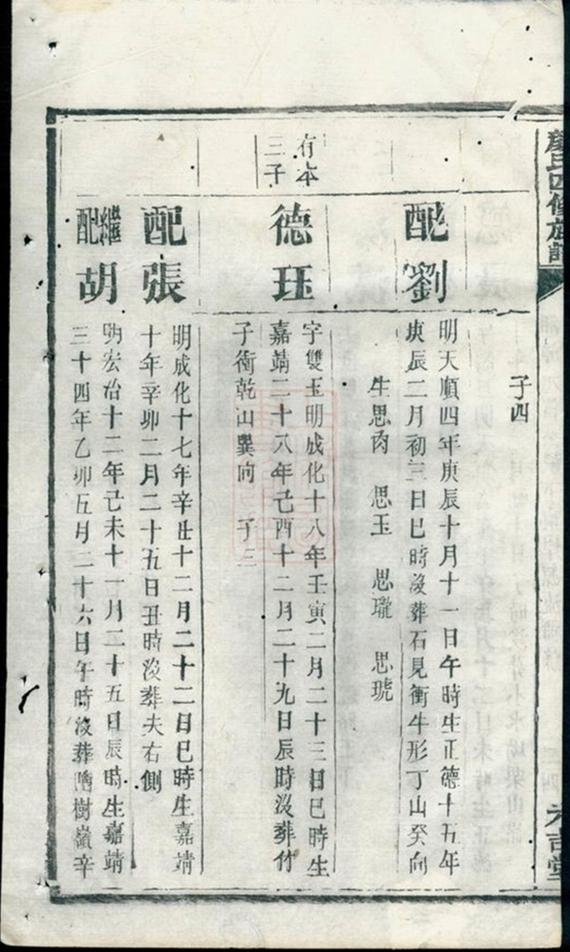 氏四修族譜
元吉堂
子四
配劉
明天順四年庚辰十月十一日午時生正德十五年
庚辰二月初三日巳時沒葬石見衝牛形丁山癸向
生思肉 思玉 思瓏 思琥
有本
三子
德珏
字雙玉明成化十八年壬寅二月二十三日巳時生
嘉靖二十八年己酉十二月二十九日辰時沒葬竹
子衝乾山巽向 子三
配張
明成化十七年辛丑十二月二十二日巳時生嘉靖
十年辛卯二月二十五日丑時沒葬夫右側
繼配胡
明宏治十二年己未十一月二十五日辰時生嘉靖
三十四年乙卯五月二十六日午時沒葬樹嶺辛